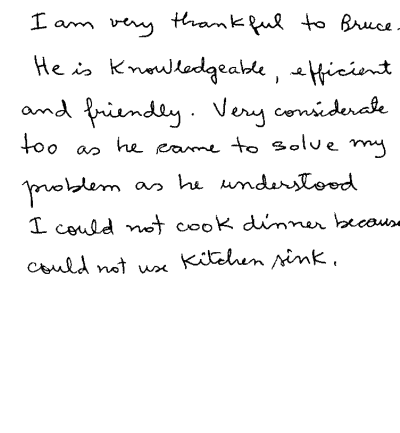 I am very thankful to Bruce.
He is knowledgeable, efficient
and friendly. Very considerate
too as he came to solve my
problem as he understood
I could not cook dinner because
could not use kitchen sink.